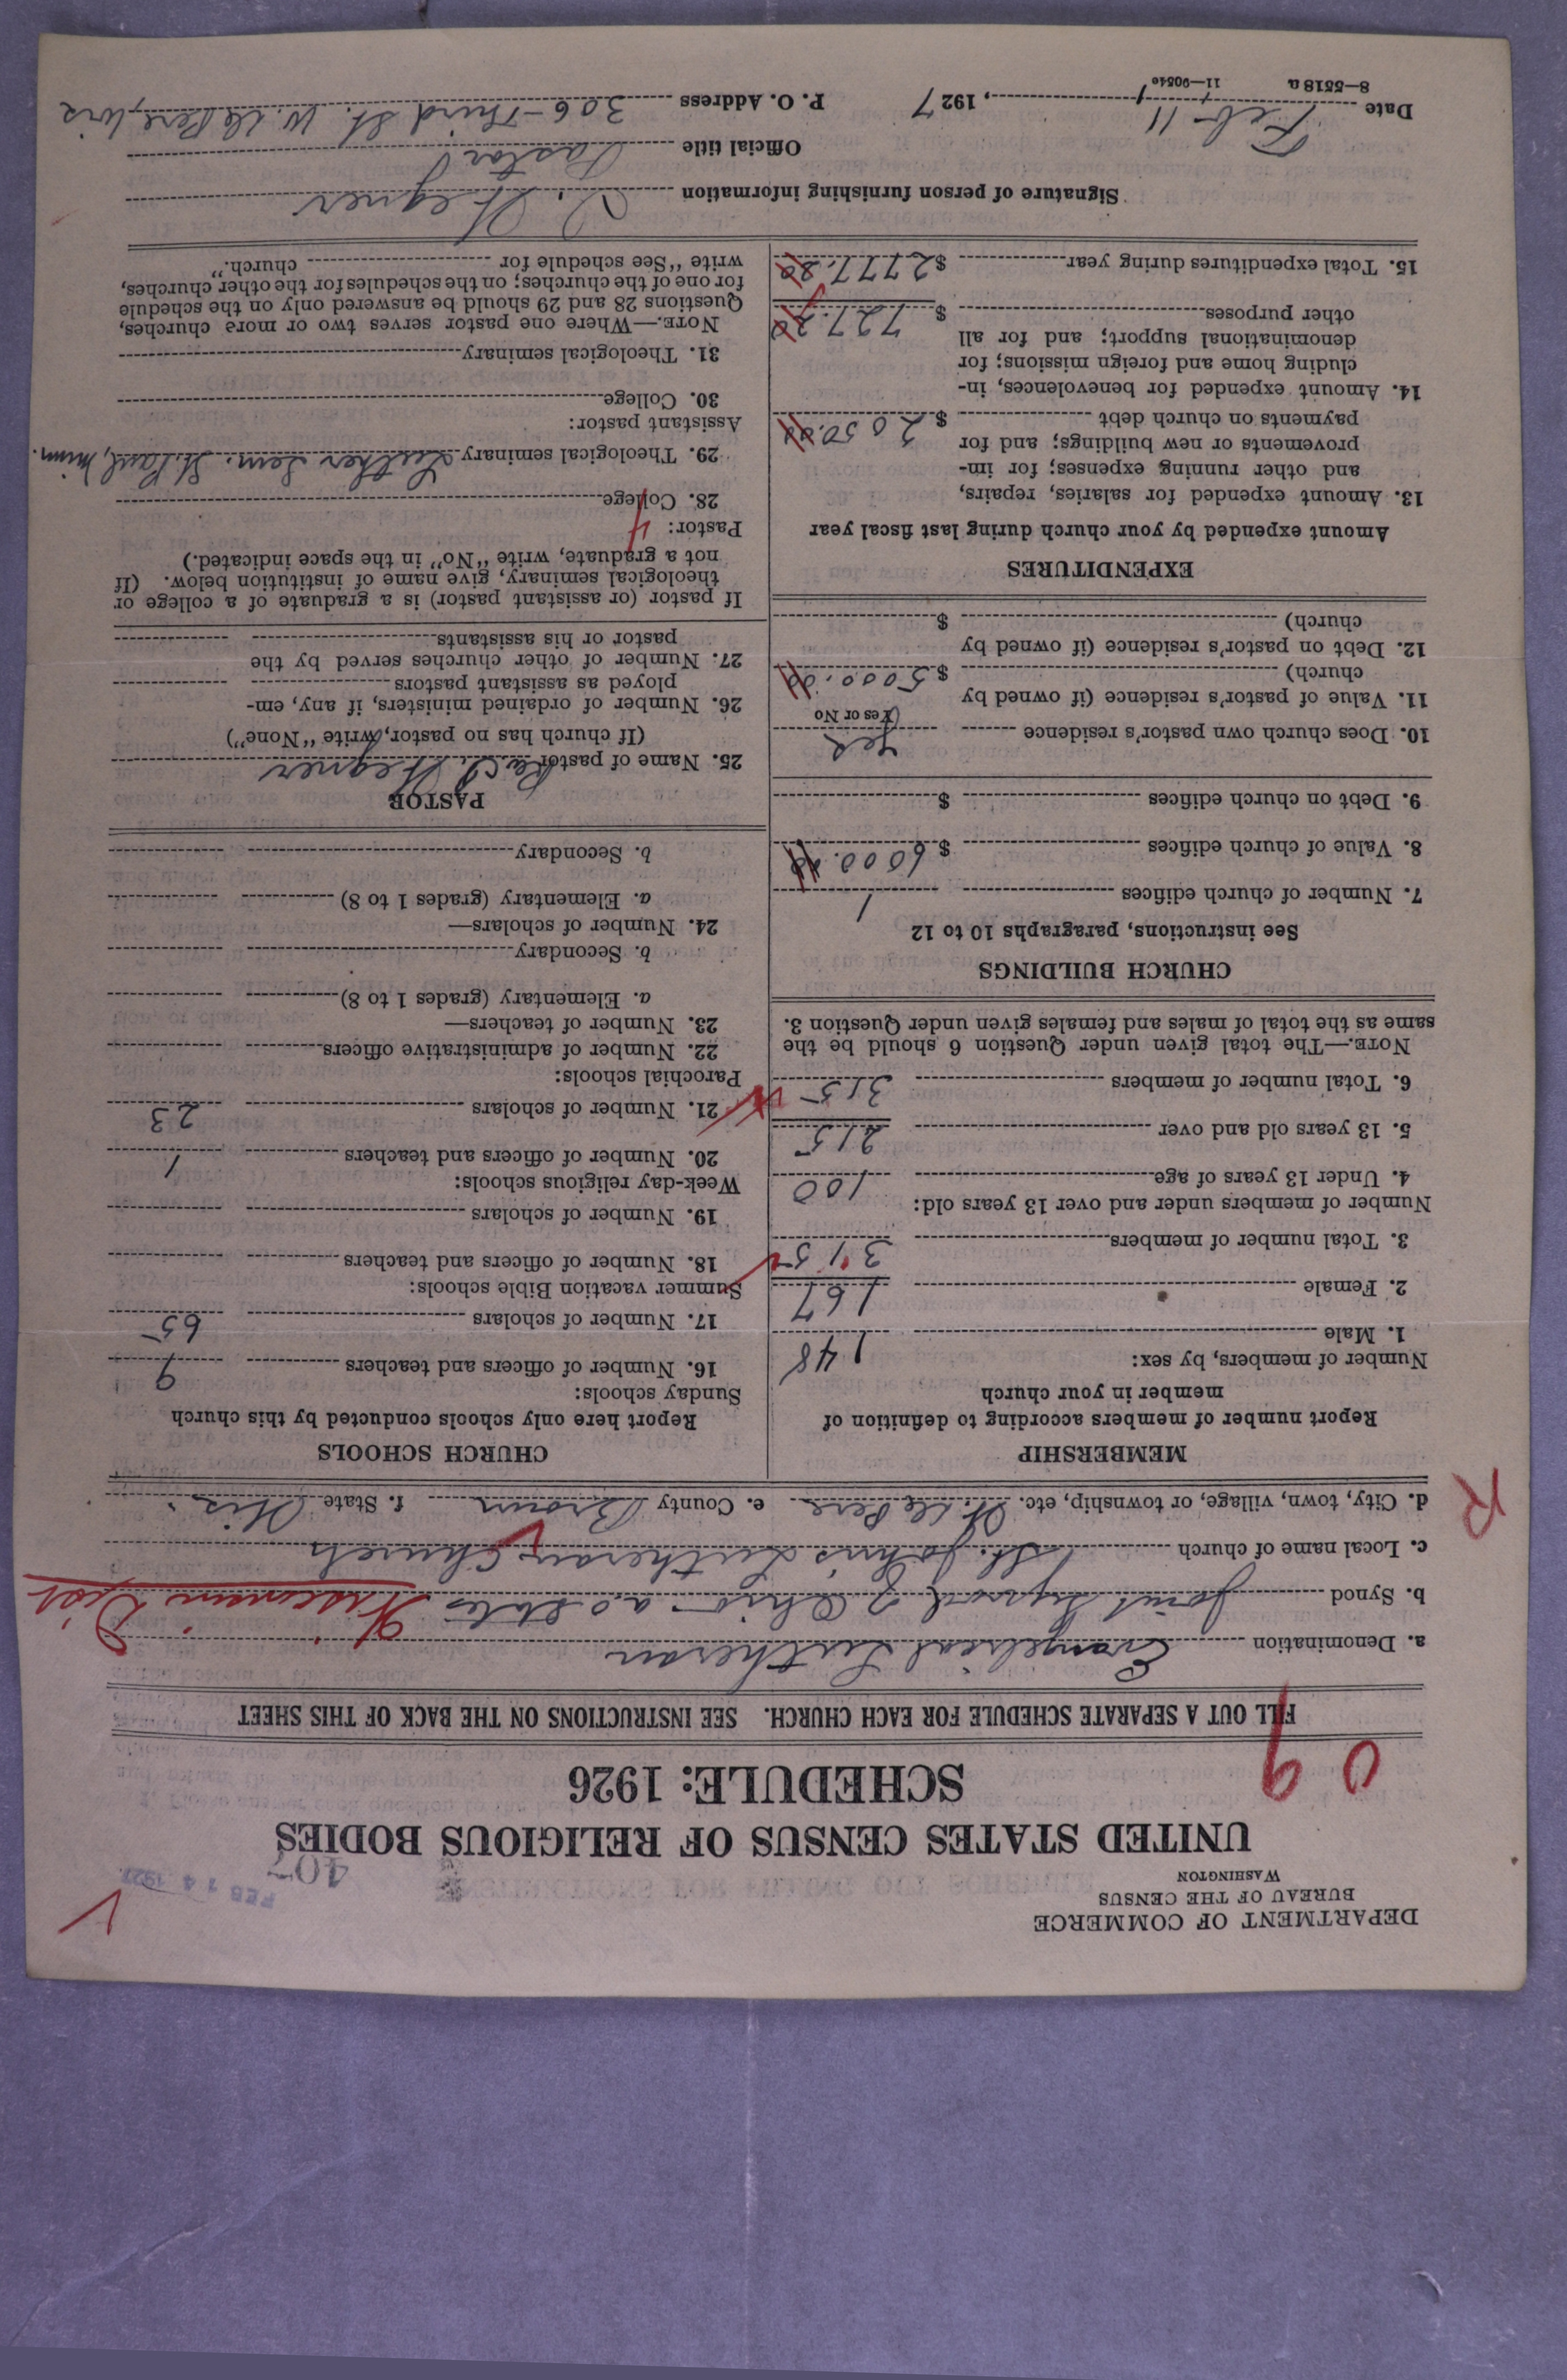 DEPARTMENT OF COMMERCE
BUREAU OF THE CENSUS
WASHINGTON
FEB 14 1927
407
UNITED STATES CENSUS OF RELIGIOUS BODIES
SCHEDULE: 1926
09
FILL OUT A SEPARATE SCHEDULE FOR EACH CHURCH. SEE INSTRUCTIONS ON THE BACK OF THIS SHEET
a. Denomination Evangelical Lutheran
b. Synod Joint Synod of Ohio a.o. States Wisconsin Dist
c. Local name of church St. John's Lutheran Church
d. City, town, village, or township, etc. W. De Pere e. County Brown f. State Wis.
R
MEMBERSHIP
Report number of members according to definition of
member in your church
Number of members, by sex:
1. Male 148
2. Female 167
3. Total number of members 315
Number of members under and over 13 years old:
4. Under 13 years of age 100
5. 13 years old and over 215
6. Total number of members 315
NOTE.—The total given under Question 6 should be the
same as the total of males and females given under Question 3.
CHURCH BUILDINGS
See instructions, paragraphs 10 to 12
7. Number of church edifices 1
8. Value of church edifices $ 6000.00
9. Debt on church edifices $
10. Does church own pastor's residence Yes
(Yes or No
11. Value of pastor's residence (if owned by
church) $ 5000.00
12. Debt on pastor's residence (if owned by
church) $
EXPENDITURES
Amount expended by your church during last fiscal year
13. Amount expended for salaries, repairs,
and other running expenses; for im-
provements or new buildings; and for
payments on church debt $ 2050.00
14. Amount expended for benevolences, in-
cluding home and foreign missions; for
denominational support; and for all
other purposes $ 727.80
15. Total expenditures during year $ 2777.80
CHURCH SCHOOLS
Report here only schools conducted by this church
Sunday schools:
16. Number of officers and teachers 9
17. Number of scholars 65
Summer vacation Bible schools:
18. Number of officers and teachers
19. Number of scholars
Week-day religious schools:
20. Number of officers and teachers 1
21. Number of scholars 23
Parochial schools:
22. Number of administrative officers
23. Number of teachers—
a. Elementary (grades 1 to 8)
b. Secondary
24. Number of scholars—
a. Elementary (grades 1 to 8)
b. Secondary
PASTOR
25. Name of pastor Rev. Wegner
(If church has no pastor, write "None")
26. Number of ordained ministers, if any, em-
ployed as assistant pastors
27. Number of other churches served by the
pastor or his assistants
If pastor (or assistant pastor) is a graduate of a college or
theological seminary, give name of institution below. (If
not a graduate, write "No" in the space indicated.)
Pastor: 4
28. College
29. Theological seminary Luther Sem. St. Paul, Minn.
Assistant pastor:
30. College
31. Theological seminary
NOTE.—Where one pastor serves two or more churches,
Questions 28 and 29 should be answered only on the schedule
for one of the churches; on the schedules for the other churches,
write "See schedule for church."
Signature of person furnishing information Wegner
Official title Pastor
Date Feb 11, 1927 P. O. Address 306 - Third St. W. De Pere, Wis
8—5518 a 11—9054e